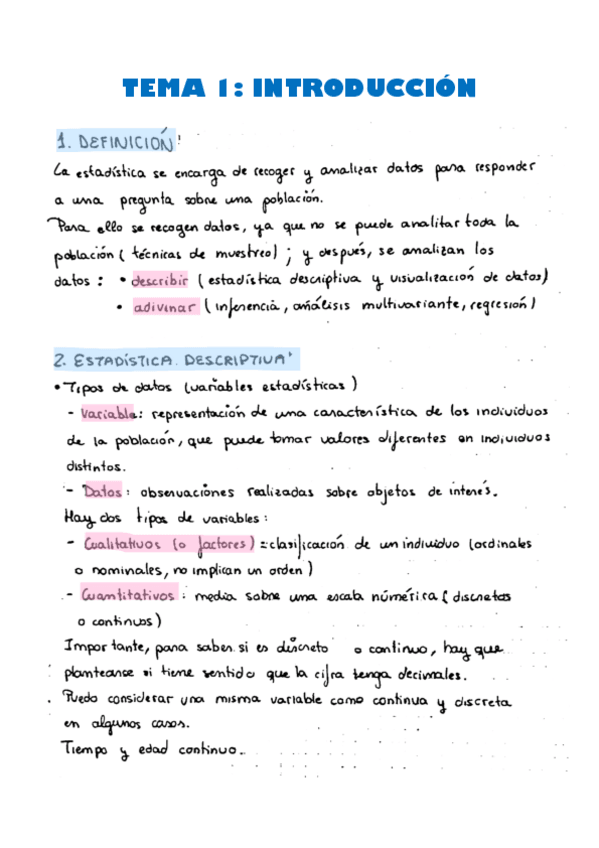 TEMA 1: INTRODUCCIÓN
1. DEFINICIÓN:
La estadística se encarga de recoger y analizar datos para responder
a una pregunta sobre una población.
Para ello se recogen datos, ya que no se puede analitar toda la
población ( técnicas de muestreo) ; y después, se analizan los
datos : • describir ( estadística descriptiva y visualización de datos)
• adivinar ( inferencia, análisis multivariante, regresión)
2. ESTADÍSTICA DESCRIPTIVA:
• Tipos de datos (variables estadísticas)
- Variable: representación de una característica de los individuos
de la población, que puede tomar valores diferentes en individuos
distintos.
- Datos: observaciones realizadas sobre objetos de interés.
Hay dos tipos de variables:
- Cualitativos (o factores) = clasificación de un individuo (ordinales
o nominales, no implican un orden)
- Cuantitativos : media sobre una escala numérica ( discretos
o continuos)
Importante, para saber si es discreto o continuo, hay que
plantearse si tiene sentido que la cifra tenga decimales.
. Puedo considerar una misma variable como continua y discreta
en algunos casos.
Tiempo y edad continuo.